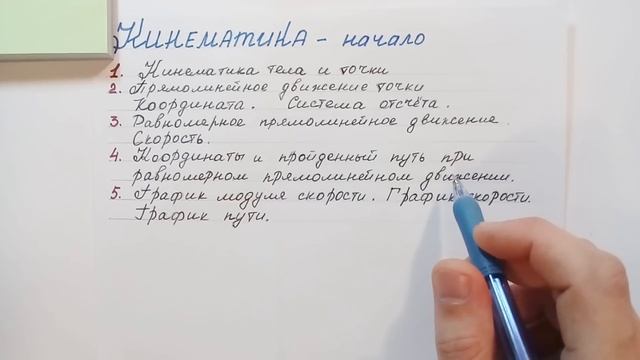 КИНЕМАТИКА - начало
1. Кинематика тела и точки
2. Прямолинейное движение точки
Координата. Система отсчёта.
3. Равномерное прямолинейное движение.
Скорость.
4. Координаты и пройденный путь при
равномерном прямолинейном движении.
5. График модуля скорости. График скорости.
График пути.